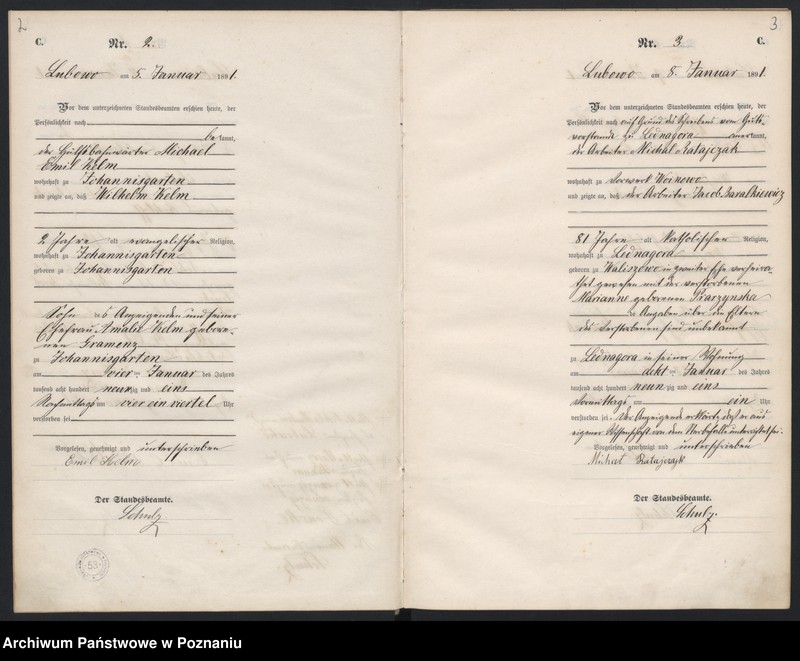 2
C.
Nr. 2.
Lubowo am 5. Januar 1891.
Vor dem unterzeichneten Standesbeamten erschien heute, der
Persönlichkeit nach
bekannt,
der Hülfsbahnwärter Michael
Emil Kelm
wohnhaft zu Johannisgarten
und zeigte an, daß Wilhelm Kelm
2 Jahre alt evangelischer Religion,
wohnhaft zu Johannisgarten
geboren zu Johannisgarten
Sohn des Anzeigenden und seiner
Ehefrau Amalie Kelm gebore-
nen Gramenz
zu Johannisgarten
am vier- Januar des Jahres
tausend acht hundert neunzig und eins
Nachmittags um vier ein viertel Uhr
verstorben sei
Vorgelesen, genehmigt und unterschrieben
Emil Kelm
Der Standesbeamte.
Schulz
53
3
Nr. 3
C.
Lubowo am 8. Januar 1891.
Vor dem unterzeichneten Standesbeamten erschien heute, der
Persönlichkeit nach auf Grund des Schreibens vom Guts-
vorstande zu Lednagora anerkannt,
der Arbeiter Michal Ratajczak
wohnhaft zu Vorwerk Woinowo
und zeigte an, daß der Arbeiter Jacob Baralkiewicz
81 Jahre alt katholischer Religion,
wohnhaft zu Lednagora
geboren zu Waliszewo in zweiter Ehe verheira-
thet gewesen mit der verstorbenen
Marianne geborenen Praczynska
Angaben über die Eltern
des Verstorbenen sind unbekannt
zu Lednagora in seiner Wohnung
am acht- Januar des Jahres
tausend acht hundert neunzig und eins
Vormittags um ein Uhr
verstorben sei. Der Anzeigende erklärte, daß er aus
eigener Wissenschaft von dem Sterbefalle unterrichtet sei.
Vorgelesen, genehmigt und unterschrieben
Michał Ratajczyk
Der Standesbeamte.
Schulz.
Archiwum Państwowe w Poznaniu